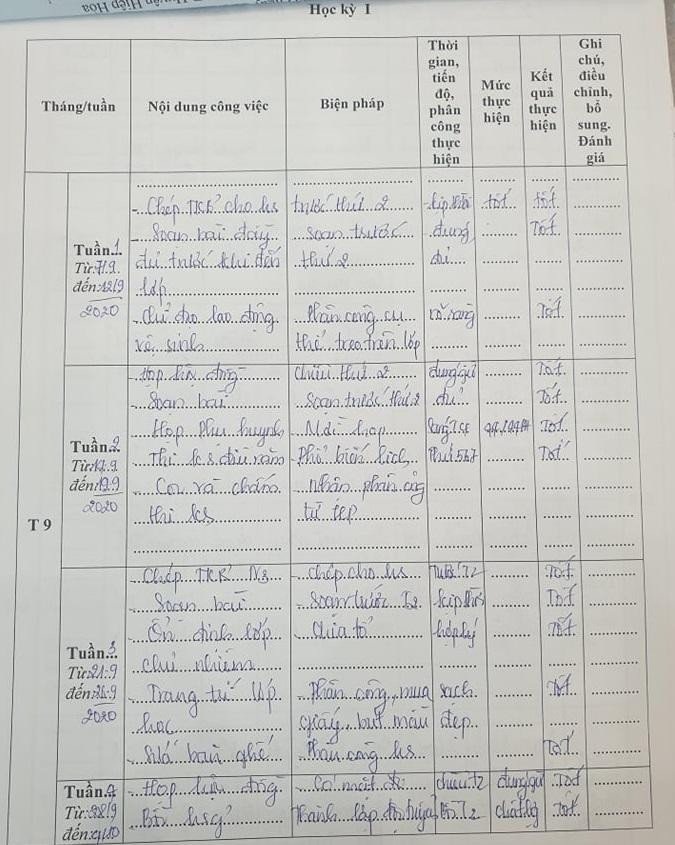 Hiệp Hoa
Học kỳ I
Tháng/tuần
Nội dung công việc
Biện pháp
Thời gian, tiến độ, phân công thực hiện
Mức thực hiện
Kết quả thực hiện
Ghi chú, điều chỉnh, bổ sung. Đánh giá
T 9
Tuần 1
Từ: 7/9
đến: 12/9
2020
- Chép TKB cho hs trước thứ 2 kịp thời tốt tốt
- Soạn bài đầy soạn trước đúng Tốt
đủ trước khi đến thứ 2 đủ
lớp
- Chỉ đạo lao động Phân công cụ rõ ràng Tốt
vệ sinh thể treo trên lớp
Tuần 2
đến: 19.9
2020
- Họp liên đồng chiều thứ 2 đúng giờ Tốt
- Soạn bài Soạn trước thứ 2 đủ Tốt
- Họp phụ huynh Tốt
- Thi đầu năm - Phổ biến lịch Thứ 5 6 7 Tốt
- Coi và chấm - Nhận phân công
thi từ
Tuần 3
Từ: 21.9
đến: 26.9
2020
- Chép TKB N3 - Chép cho hs Trước T2 Tốt
- Soạn bài - Soạn trước T2 kịp thời Tốt
- Ổn định lớp - Chia tổ hợp lý Tốt
chủ nhiệm
- Trang trí lớp - Phân công, mua sạch Tốt
học giấy, bút màu đẹp
- Sửa bàn ghế - Phân công hs Tốt
Tuần 4
Từ: 28/9
- Họp liên đồng - Có mặt đủ chiều T2 đúng giờ Tốt
BD hsg Thành lập đội tuyển T2 Tốt